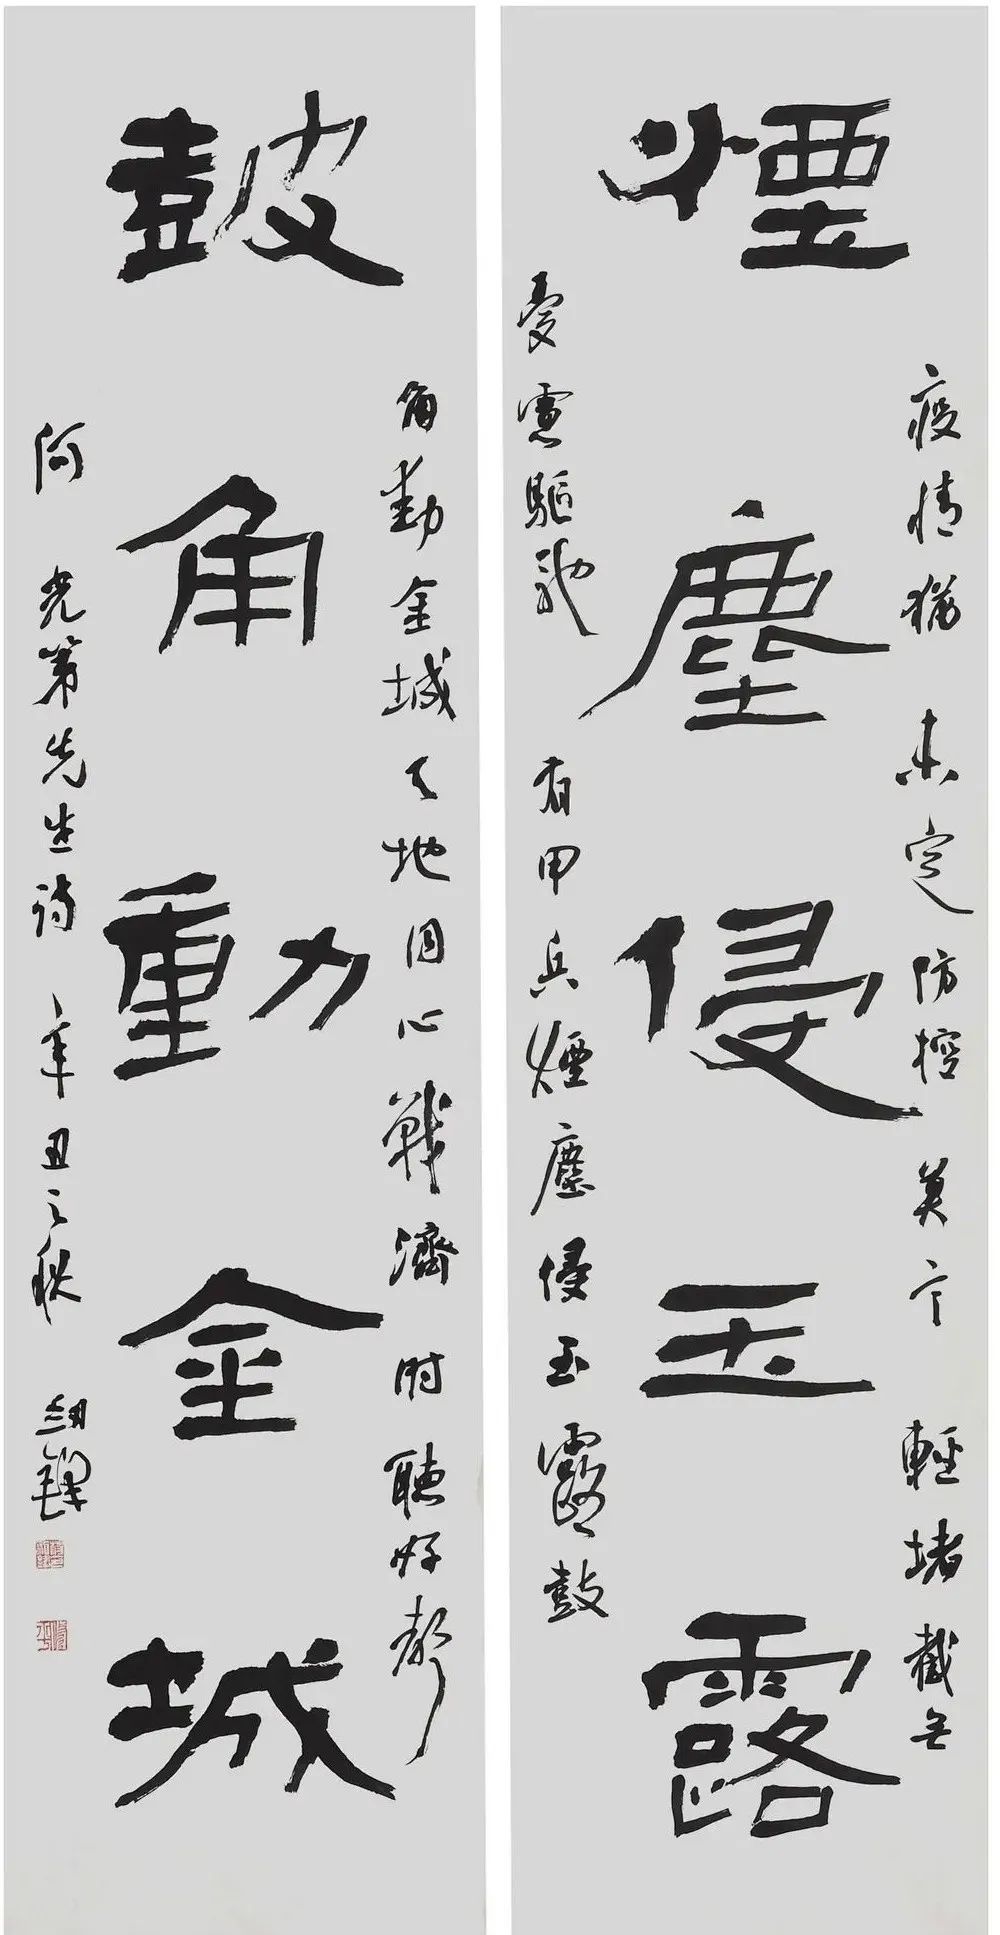 疫情猶未定防控莫宁輕堵截無
煙塵侵玉露
憂慮驅馳有甲兵煙塵侵玉露鼓
角動金城天地同心戰濟時聽好聲
鼓角動金城
何光第先生詩辛丑之秋